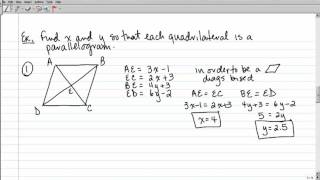 Ex. Find x and y so that each quadrilateral is a
parallelogram.
1
A B
E
D C
AE = 3x - 1
EC = 2x + 3
BE = 4y + 3
ED = 6y - 2
in order to be a ▱
diags bisect
AE = EC BE = ED
3x-1 = 2x+3 4y+3 = 6y-2
x = 4 5 = 2y
y = 2.5